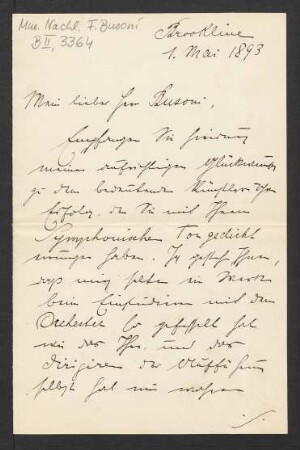 Mus. Nachl. F. Busoni
B II, 3364
Brookline
1. Mai 1893
Mein lieber Herr Busoni,
Empfangen Sie hierdurch
meinen aufrichtigen Glückwunsch
zu dem bedeutenden künstlerischen
Erfolg, den Sie mit Ihrem
Symphonischen Tongedicht
errungen haben. Ich gestehe Ihnen,
daß mich selten ein Werk
beim Einstudieren mit dem
Orchester so gefesselt hat
wie das Ihre, und das
Dirigiren der Aufführung
selbst hat mir wahren